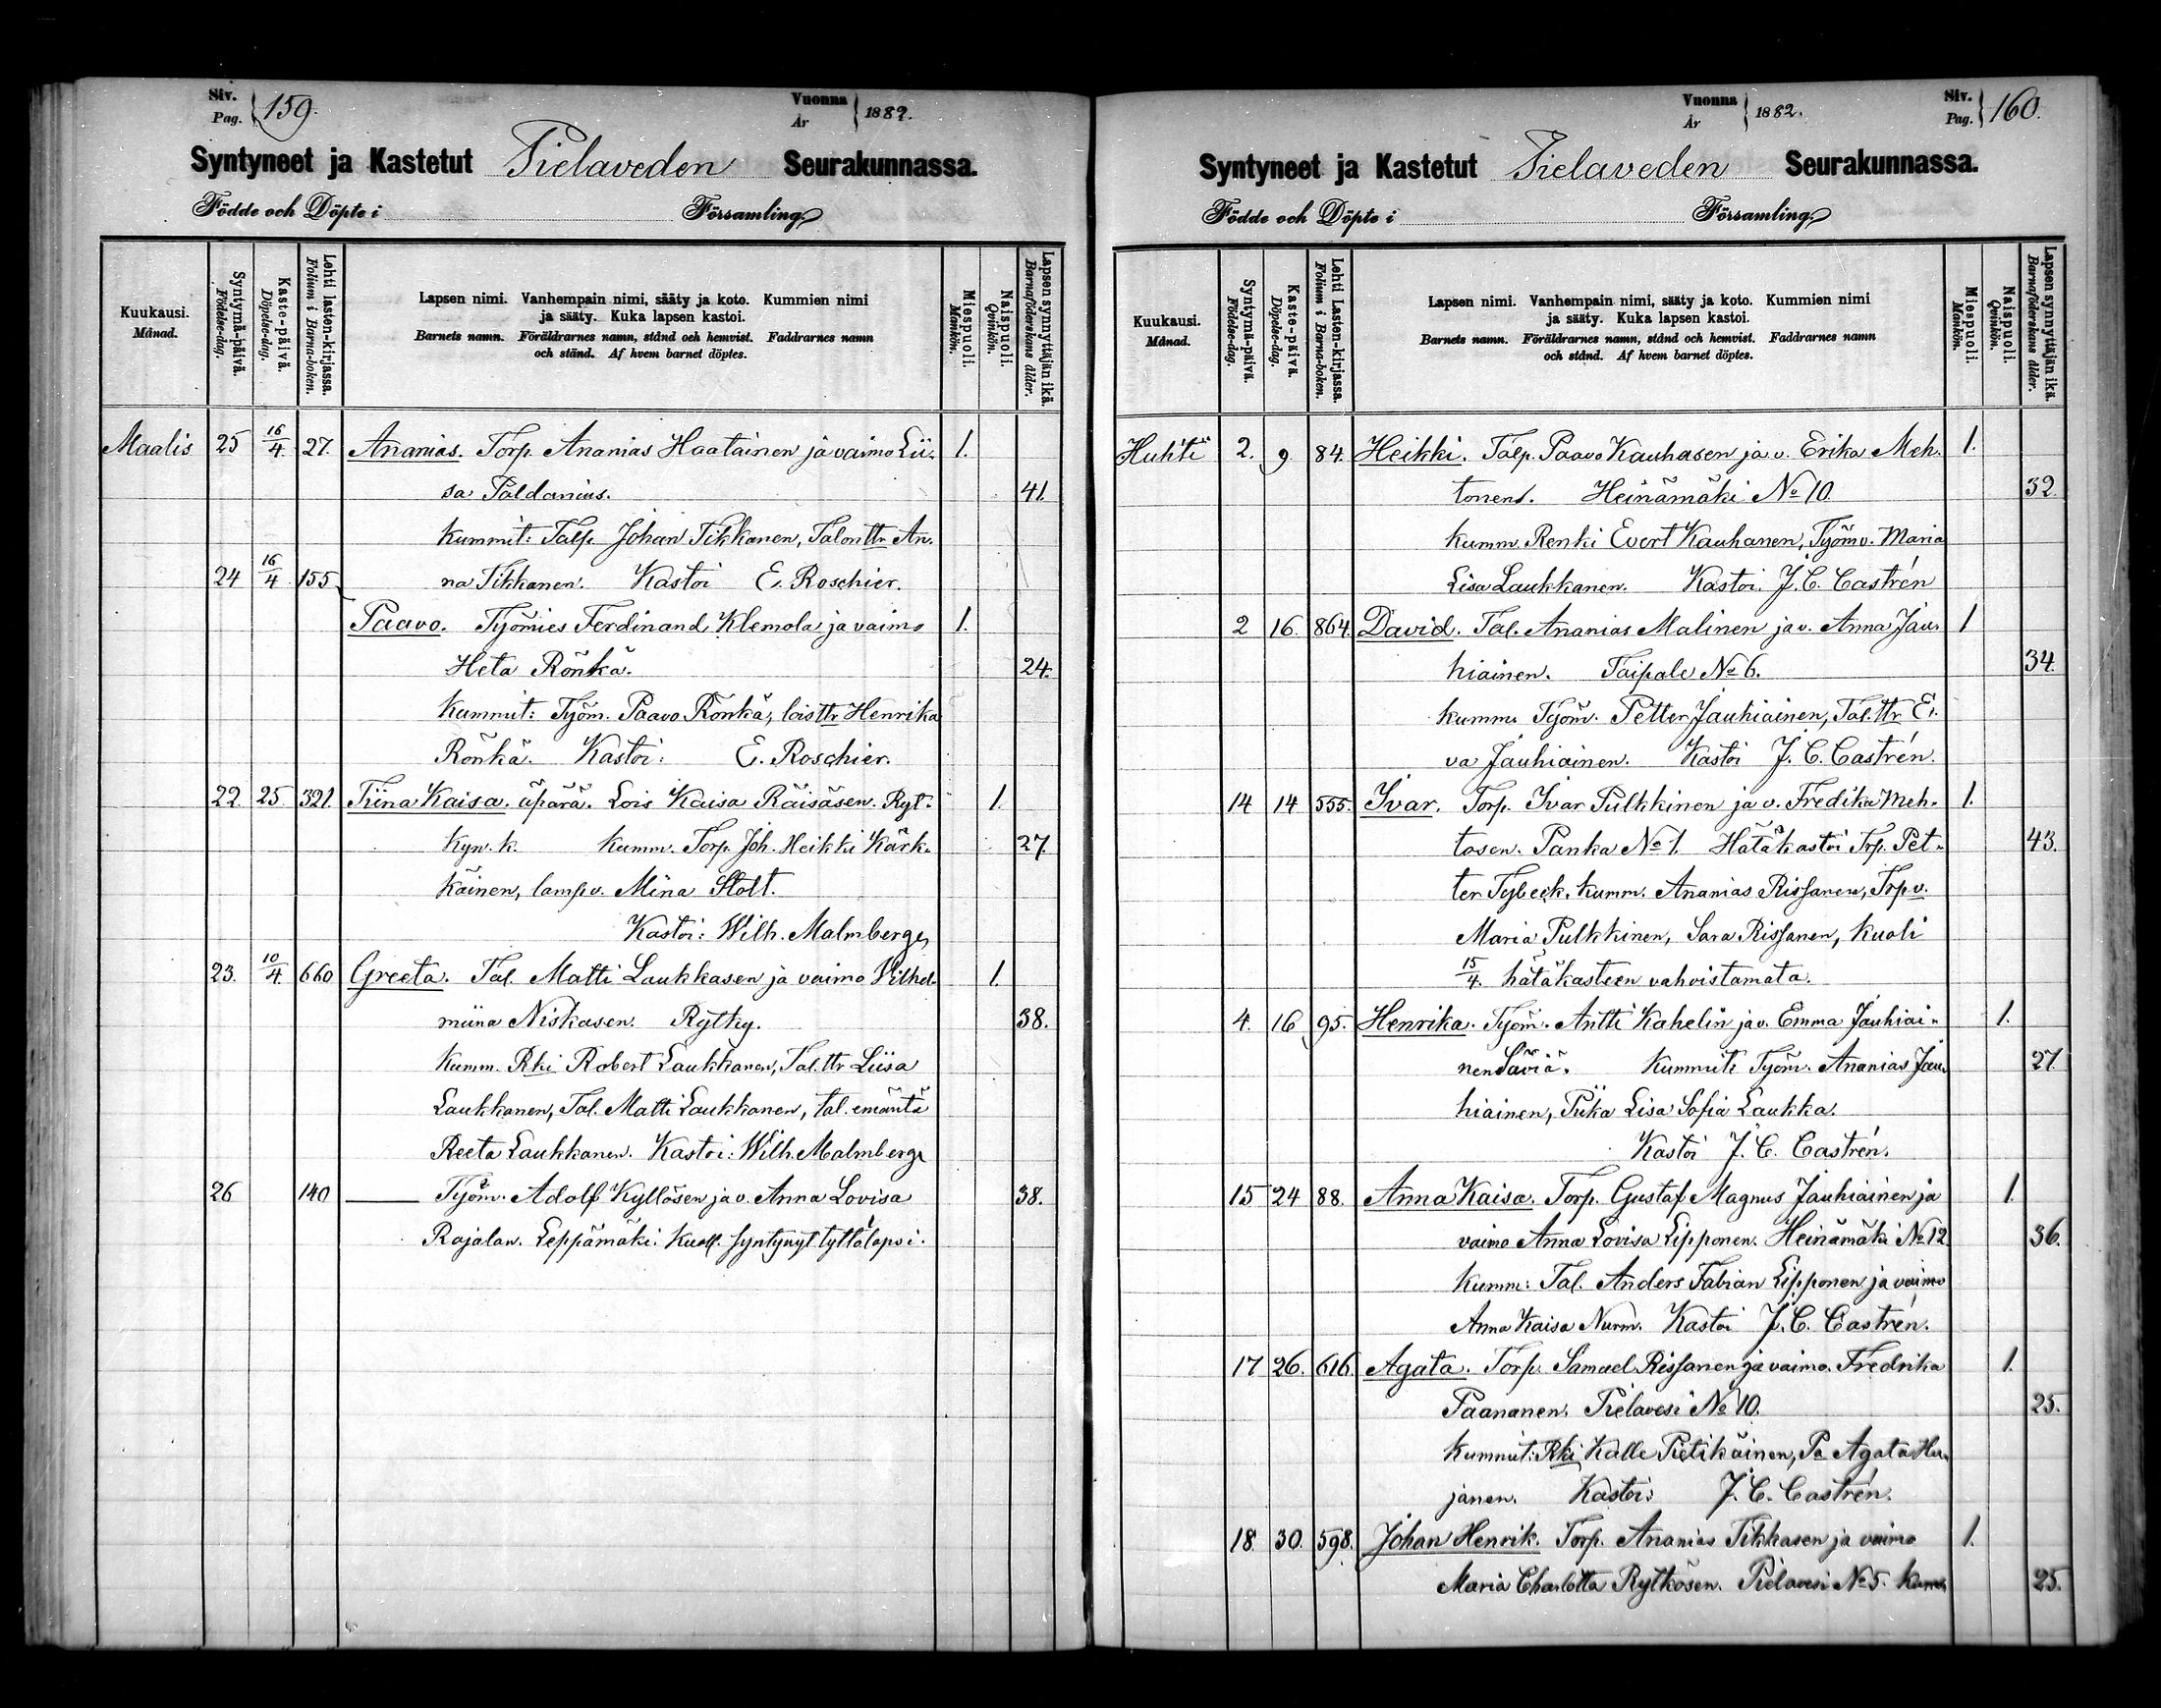 Siv. Pag. 159. Vuonna År 1882.
Syntyneet ja Kastetut Pielaveden Seurakunnassa.
Födde och Döpte i Församling.
Kuukausi. Månad.
Syntymä-päivä. Födelse-dag.
Kaste-päivä. Döpelse-dag.
Lehti lasten-kirjassa. Folium i Barna-boken.
Lapsen nimi. Vanhempain nimi, sääty ja koto. Kummien nimi
ja sääty. Kuka lapsen kastoi.
Barnets namn. Föräldrarnes namn, stånd och hemvist. Faddrarnes namn
och stånd. Af hvem barnet döptes.
Miespuoli. Mankön.
Naispuoli. Qvinkön.
Lapsen synnyttäjän ikä. Barnaföderskans ålder.
Maalis 25 16/4. 27. Ananias. Torp. Ananias Haatainen ja vaimo Lii- 1.
sa Paldanius. 41.
Kummit: Talp. Johan Tikkanen, Talonttr An-
24 16/4 155 na Tikkanen. Kastoi E. Roschier.
Paavo. Työmies Ferdinand Klemola ja vaimo 1.
Heta Rönkä. 24.
Kummit: Työm. Paavo Rönkä, loisttr Henrika
Rönkä. Kastoi: E. Roschier.
22. 25. 321. Tiina Kaisa. äpärä. Lois Kaisa Räisäsen. Ryt- 1.
kyn. k. kumm. Torp. Joh. Heikki Kärk- 27.
käinen, lampv. Mina Stolt.
Kastoi: Wilh. Malmberg
23. 10/4 660 Greeta. Tal. Matti Laukkasen ja vaimo Vilhel- 1.
miina Niskasen. Rytky. 38.
Kumm. Rki Robert Laukkanen, Tal. ttr Liisa
Laukkanen, Tal. Matti Laukkanen, tal. emäntä
Reeta Laukkanen. Kastoi: Wilh. Malmberg
26 140 — Työm. Adolf Kyllösen ja v. Anna Lovisa 38.
Rajalan. Leppämäki. Kuoll. syntynyt tyttölapsi.
Vuonna År 1882. Siv. Pag. 160.
Syntyneet ja Kastetut Pielaveden Seurakunnassa.
Födde och Döpte i Församling.
Kuukausi. Månad.
Syntymä-päivä. Födelse-dag.
Kaste-päivä. Döpelse-dag.
Lehti Lasten-kirjassa. Folium i Barna-boken.
Lapsen nimi. Vanhempain nimi, sääty ja koto. Kummien nimi
ja sääty. Kuka lapsen kastoi.
Barnets namn. Föräldrarnes namn, stånd och hemvist. Faddrarnes namn
och stånd. Af hvem barnet döptes.
Miespuoli. Mankön.
Naispuoli. Qvinkön.
Lapsen synnyttäjän ikä. Barnaföderskans ålder.
Huhti 2. 9 84. Heikki. Talp. Paavo Kauhasen ja v. Erika Meh- 1.
tonen. Heinämäki No 10. 32.
kumm. Renki Evert Kauhanen, Työmv. Maria
Lisa Laukkanen. Kastoi. J. C. Castrén
2 16. 864. David. Tal. Ananias Malinen ja v. Anna Jau- 1
hiainen. Taipale No 6. 34.
kumm. Työm. Petter Jauhiainen, Tal. ttr E-
va Jauhiainen. Kastoi J. C. Castrén.
14 14 555. Ivar. Torp. Ivar Pulkkinen ja v. Fredika Meh- 1.
tosen. Panka No 1. Hätäkastoi Trp. Pet- 43.
ter Tybeck. kumm. Ananias Rissanen, Trp v.
Maria Pulkkinen, Sara Rissanen, kuoli
15/4. hätäkasteen vahvistamata.
4. 16 95. Henrika. Työm. Antti Kahelin ja v. Emma Jauhiai- 1.
nen Säviä. Kummit: Työm. Ananias Jau- 27
hiainen, Piika Lisa Sofia Laukka.
Kastoi J. C. Castrén.
15 24 88. Anna Kaisa. Torp. Gustaf Magnus Jauhiainen ja 1.
vaimo Anna Lovisa Lipponen. Heinämäki No 12. 36.
kumm: Tal. Anders Fabian Lipponen ja vaimo
Anna Kaisa Nurm. Kastoi J. C. Castrén.
17 26. 616. Agata. Torp. Samuel Rissanen ja vaimo. Fredrika 1.
Paananen. Pielavesi No 10. 25.
kummit: Rki Kalle Pietikäinen, Pa Agata
janen. Kastoi: J. C. Castrén.
18. 30. 598. Johan Henrik. Torp. Ananias Tikkasen ja vaimo 1.
Maria Charlotta Rytkösen. Pielavesi No 5. kumm. 25.